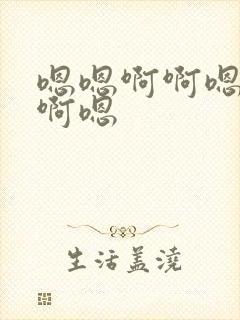 嗯嗯啊啊嗯
啊嗯
生活盖浇